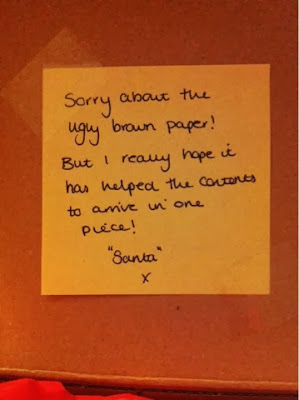 Sorry about the
ugly brown paper!
But I really hope it
has helped the contents
to arrive in one
piece!
"Santa"
x